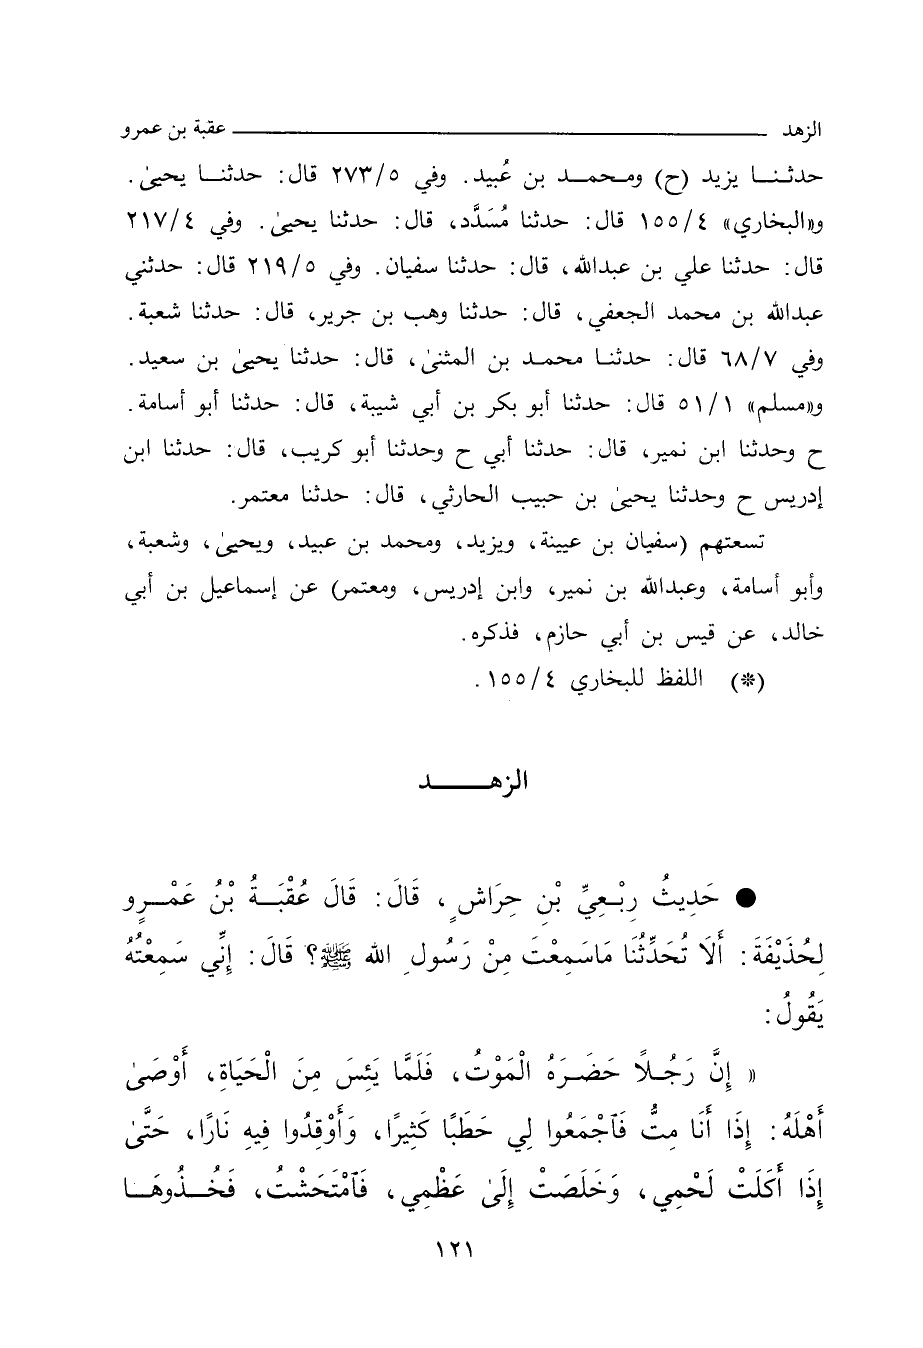 الزهد ــــــــــــــــ عقبة بن عمرو
حدثنا يزيد (ح) ومحمد بن عُبيد. وفي ٢٧٣/٥ قال: حدثنا يحيىٰ.
و«البخاري» ١٥٥/٤ قال: حدثنا مُسَدَّد، قال: حدثنا يحيىٰ. وفي ٢١٧/٤
قال: حدثنا علي بن عبدالله، قال: حدثنا سفيان. وفي ٢١٩/٥ قال: حدثني
عبدالله بن محمد الجعفي، قال: حدثنا وهب بن جرير، قال: حدثنا شعبة.
وفي ٦٨/٧ قال: حدثنا محمد بن المثنىٰ، قال: حدثنا يحيىٰ بن سعيد.
و«مسلم» ٥١/١ قال: حدثنا أبو بكر بن أبي شيبة، قال: حدثنا أبو أسامة.
ح وحدثنا ابن نمير، قال: حدثنا أبي ح وحدثنا أبو كريب، قال: حدثنا ابن
إدريس ح وحدثنا يحيىٰ بن حبيب الحارثي، قال: حدثنا معتمر.
تسعتهم (سفيان بن عيينة، ويزيد، ومحمد بن عبيد، ويحيىٰ، وشعبة،
وأبو أسامة، وعبدالله بن نمير، وابن إدريس، ومعتمر) عن إسماعيل بن أبي
خالد، عن قيس بن أبي حازم، فذكره.
(*) اللفظ للبخاري ١٥٥/٤.
الزهـــــد
● حَدِيثُ رِبْعِيِّ بْنِ حِرَاشٍ، قَالَ: قَالَ عُقْبَةُ بْنُ عَمْرٍو
لِحُذَيْفَةَ: أَلَا تُحَدِّثُنَا مَاسَمِعْتَ مِنْ رَسُولِ الله ﷺ؟ قَالَ: إِنِّي سَمِعْتُهُ
يَقُولُ:
« إِنَّ رَجُلاً حَضَرَهُ الْمَوْتُ، فَلَمَّا يَئِسَ مِنَ الْحَيَاةِ، أَوْصَىٰ
أَهْلَهُ: إِذَا أَنَا مِتُّ فَٱجْمَعُوا لِي حَطَبًا كَثِيرًا، وَأَوْقِدُوا فِيهِ نَارًا، حَتَّىٰ
إِذَا أَكَلَتْ لَحْمِي، وَخَلَصَتْ إِلَىٰ عَظْمِي، فَٱمْتَحَشْتُ، فَخُذُوهَا
١٢١